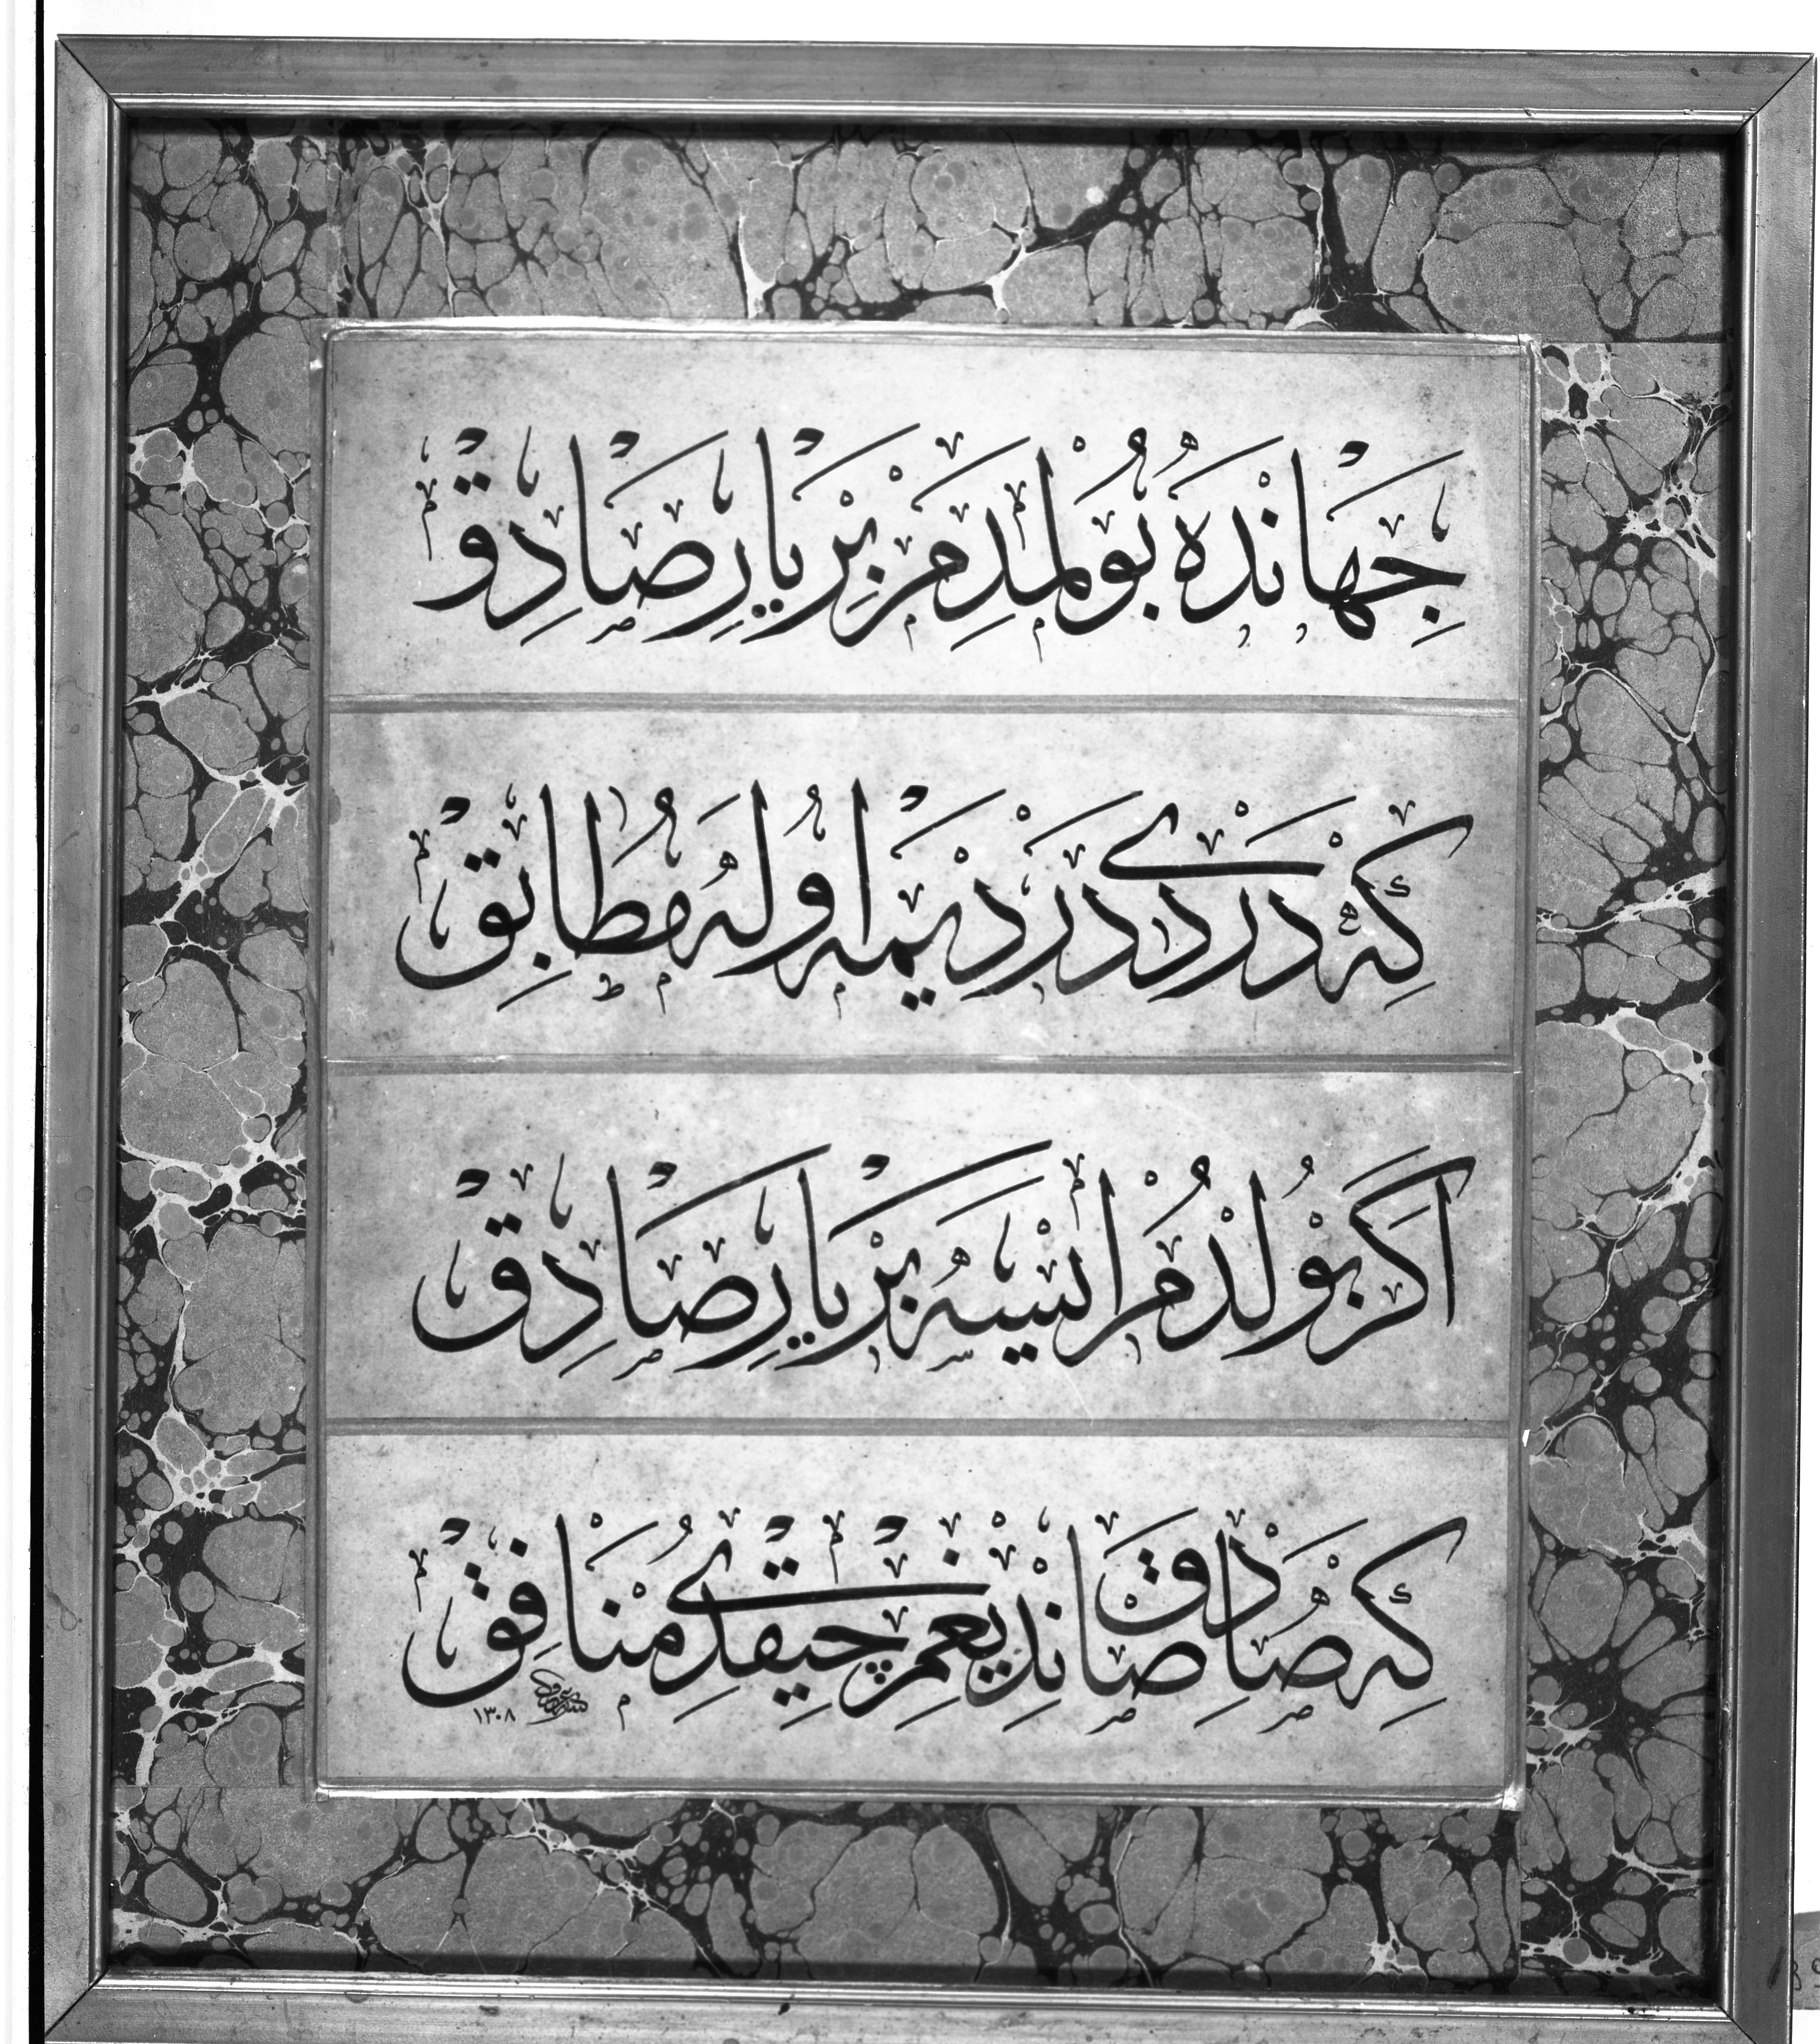 جِهَانْدَه بُولْمَدِمْ بِرْ يَارِ صَادِقْ
كِه دَرْدِى دَرْدِيمَه اُولَه مُطَابِقْ
اَكَرْ بُولْدُمْ اِيسَه بِرْ يَارِ صَادِقْ
كِه صَادِقْ صَانْدِيغِمْ چِيقْدِى مُنَافِقْ
١٣٠٨